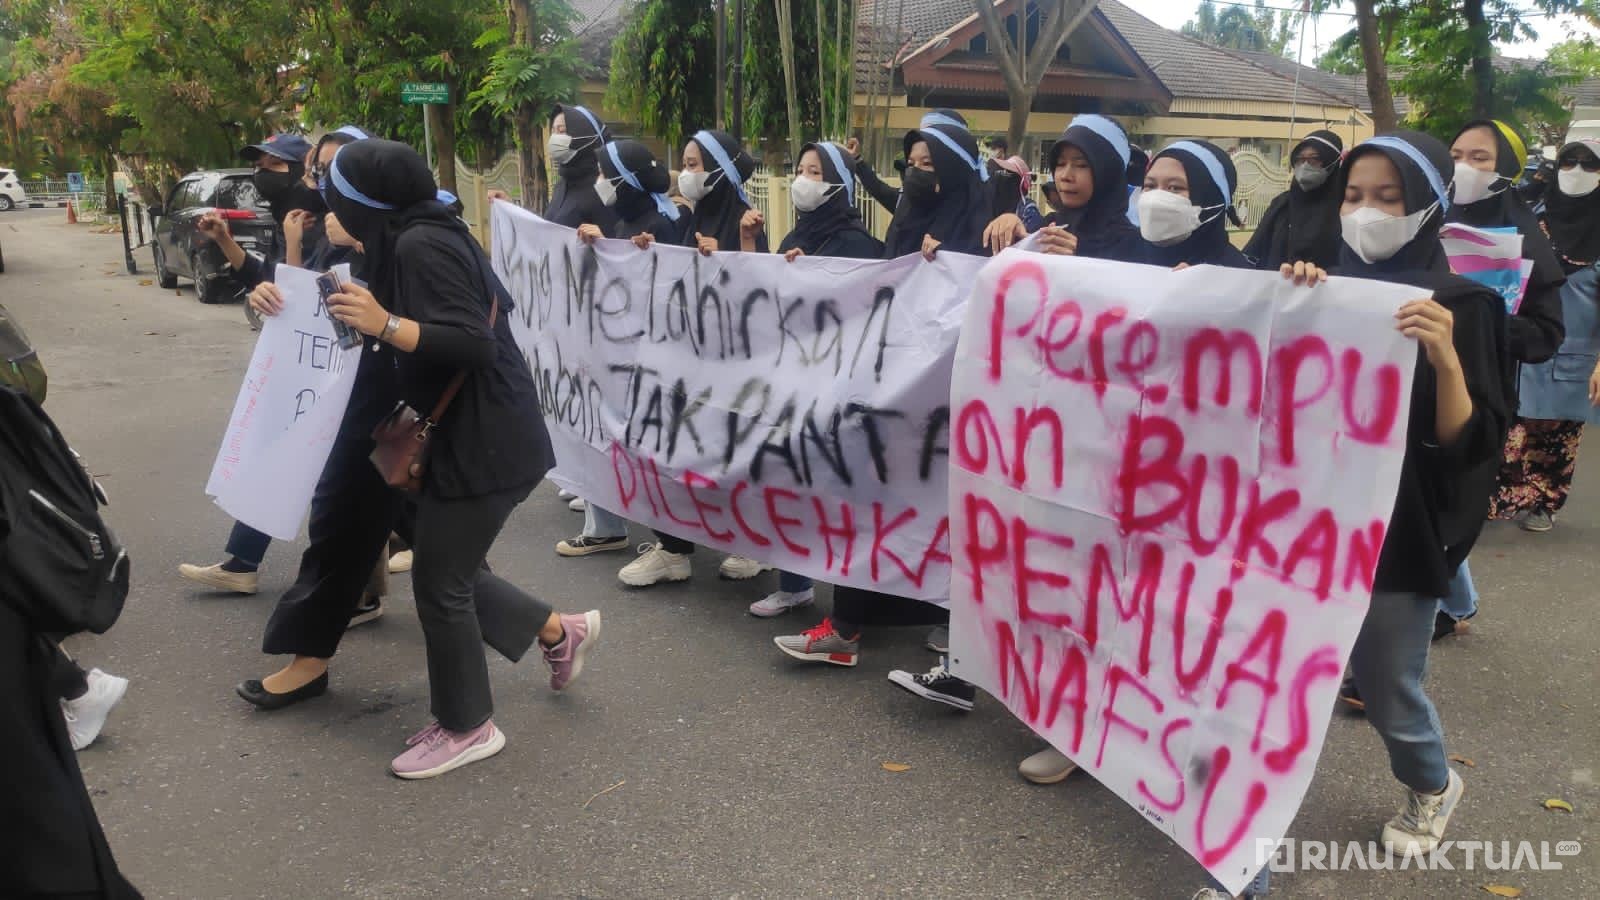 JL TAMBELAN
Yang Melahirkan
TAK PANTA
DILECEHKA
Perempu
an BUKAN
PEMUAS
NAFSU
RIAUAKTUAL.com